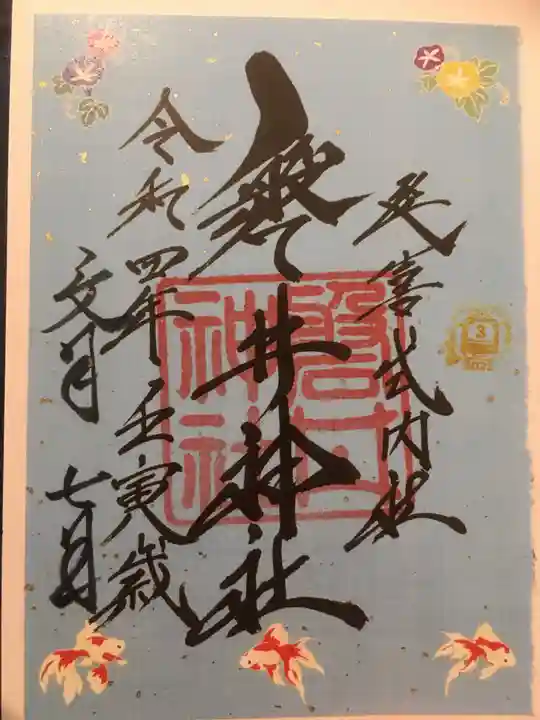 延喜式内社
磐井神社
磐井
神社
令和四年壬寅歳
文月 七月
3
2022